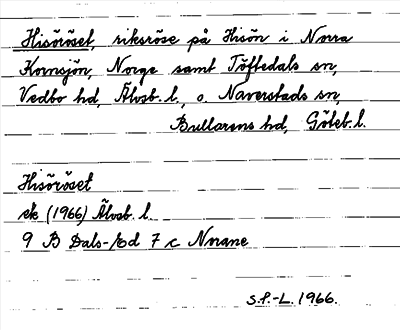 Hisöröset, riksröse på Hisön i Norra
Kornsjön, Norge samt Töftedals sn,
Vedbo hd, Älvsb. l., o. Naverstads sn,
Bullarens hd, Göteb. l.
Hisöröset
ek (1966) Älvsb. l.
9 B Dals-Ed 7 c Norane
S.F.-L. 1966.